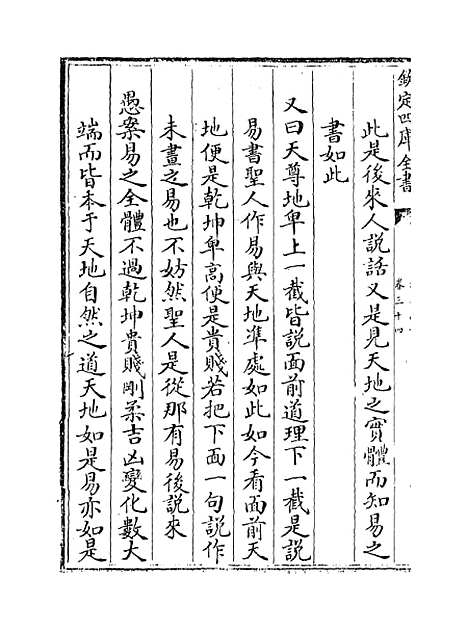 欽定四庫全書
卷三十四
此是後來人説話又是見天地之實體而知易之
書如此
又曰天尊地卑上一截皆説面前道理下一截是説
易書聖人作易與天地凖處如此如今看面前天
地便是乾坤卑高便是貴賤若把下面一句説作
未畫之易也不妨然聖人是從那有易後説來
愚案易之全體不過乾坤貴賤剛柔吉凶變化數大
端而皆本于天地自然之道天地如是易亦如是